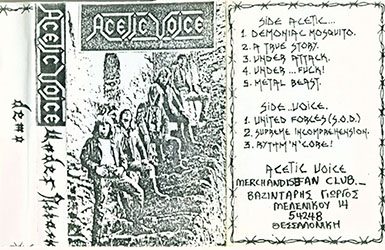 ACETIC VOICE
Under Attack
demo
ACETIC VOICE
SIDE ACETIC...
1. DEMONIAC MOSQUITO.
2. A TRUE STORY.
3. UNDER ATTACK.
4. UNDER ...FUCK!
5. METAL BEAST.
SIDE..VOICE.
1. UNITED FORCES (S.O.D.)
2. SUPREME INCOMPREHENSION.
3. RYTHM'N'CORE!
ACETIC VOICE
MERCHANDISE FAN CLUB._
ΒΑΖΙΝΤΑΡΗΣ ΓΙΩΡΓΟΣ
ΜΕΛΕΝΙΚΟΥ 14
54248
ΘΕΣΣΑΛΟΝΙΚΗ